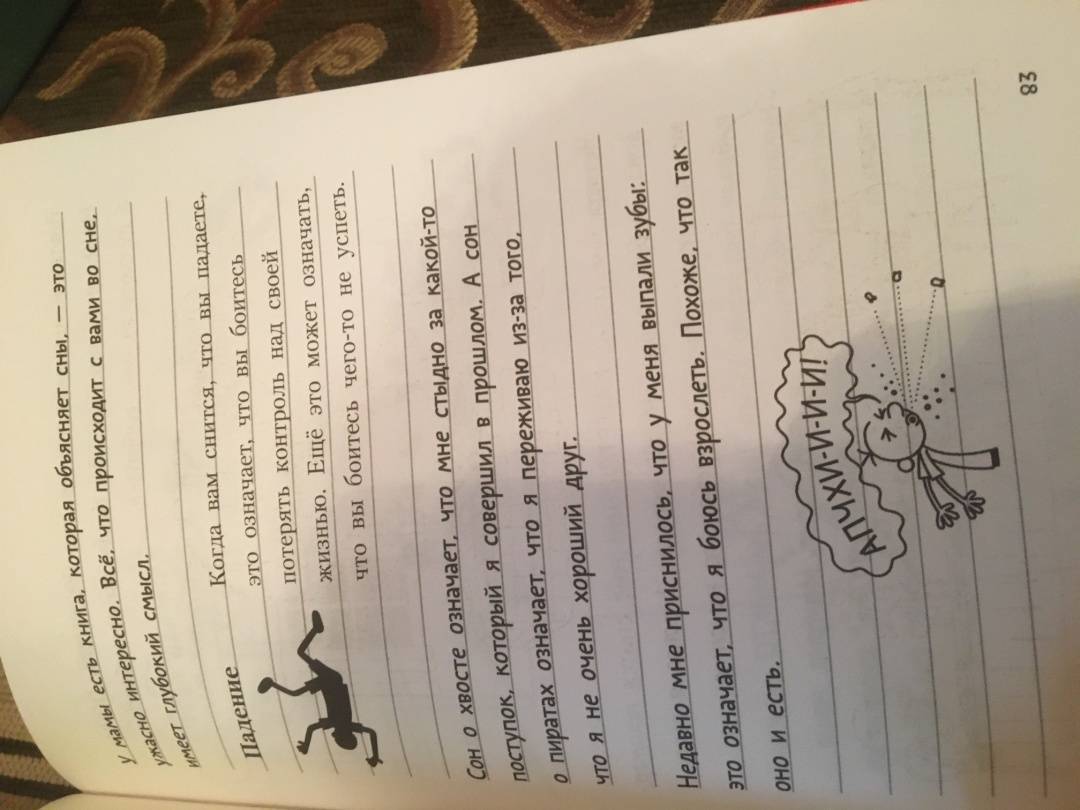 У мамы есть книга, которая объясняет сны, — это
ужасно интересно. Всё, что происходит с вами во сне,
имеет глубокий смысл.
Падение
Когда вам снится, что вы падаете,
это означает, что вы боитесь
потерять контроль над своей
жизнью. Ещё это может означать,
что вы боитесь чего-то не успеть.
Сон о хвосте означает, что мне стыдно за какой-то
поступок, который я совершил в прошлом. А сон
о пиратах означает, что я переживаю из-за того,
что я не очень хороший друг.
Недавно мне приснилось, что у меня выпали зубы:
это означает, что я боюсь взрослеть. Похоже, что так
оно и есть.
АПЧХИ-И-И-И!
83